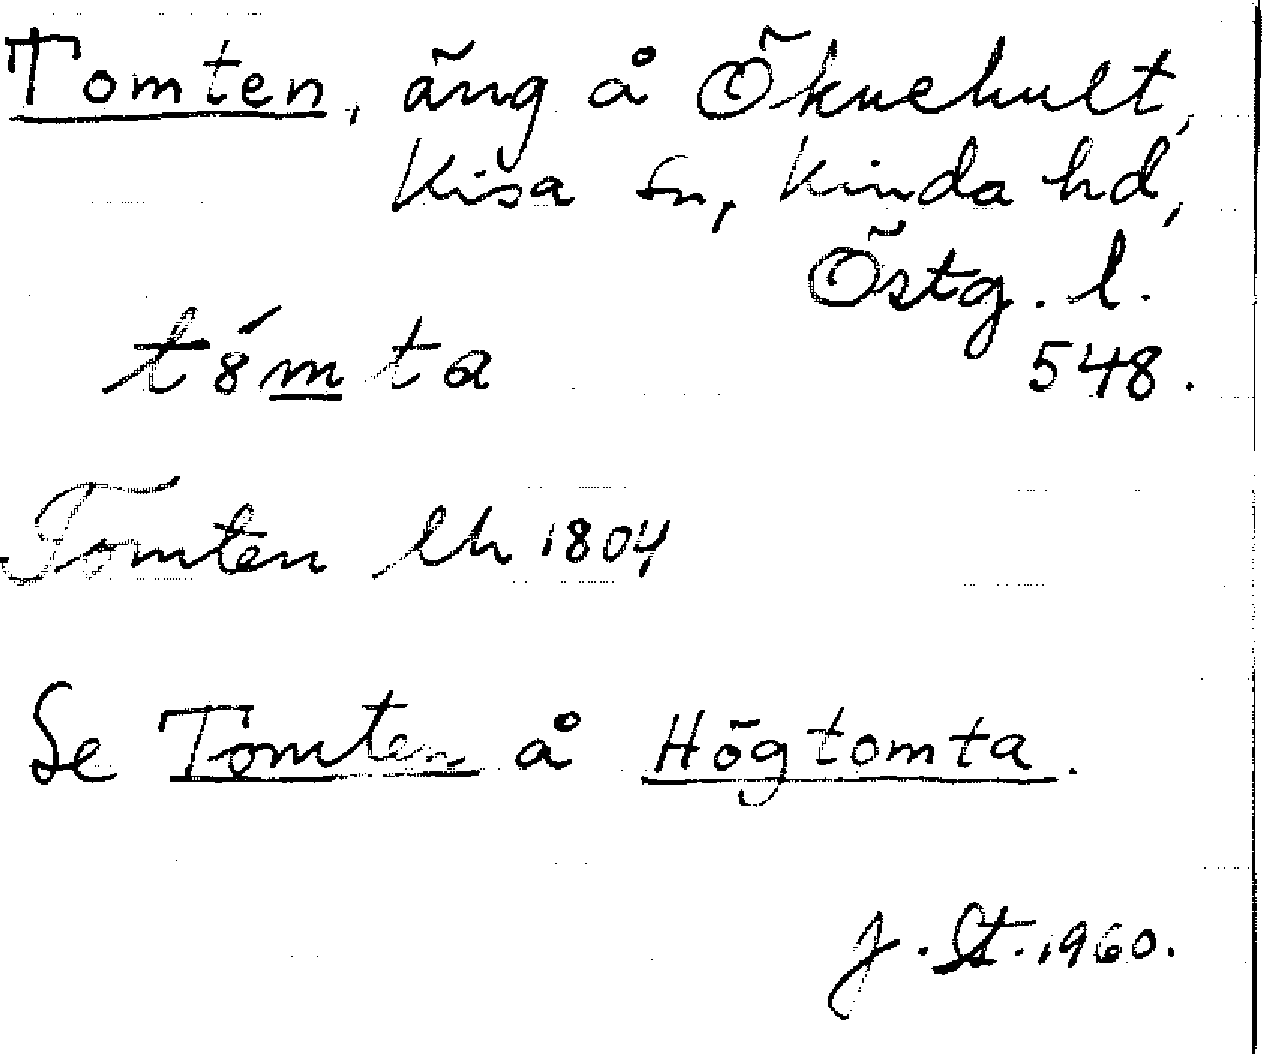 Tomten, äng å Öknehult,
Kisa sn, Kinda hd,
Östg. l.
548.
t8́mta
Tomten lh 1804
Se Tomten å Högtomta.
J. St. 1960.